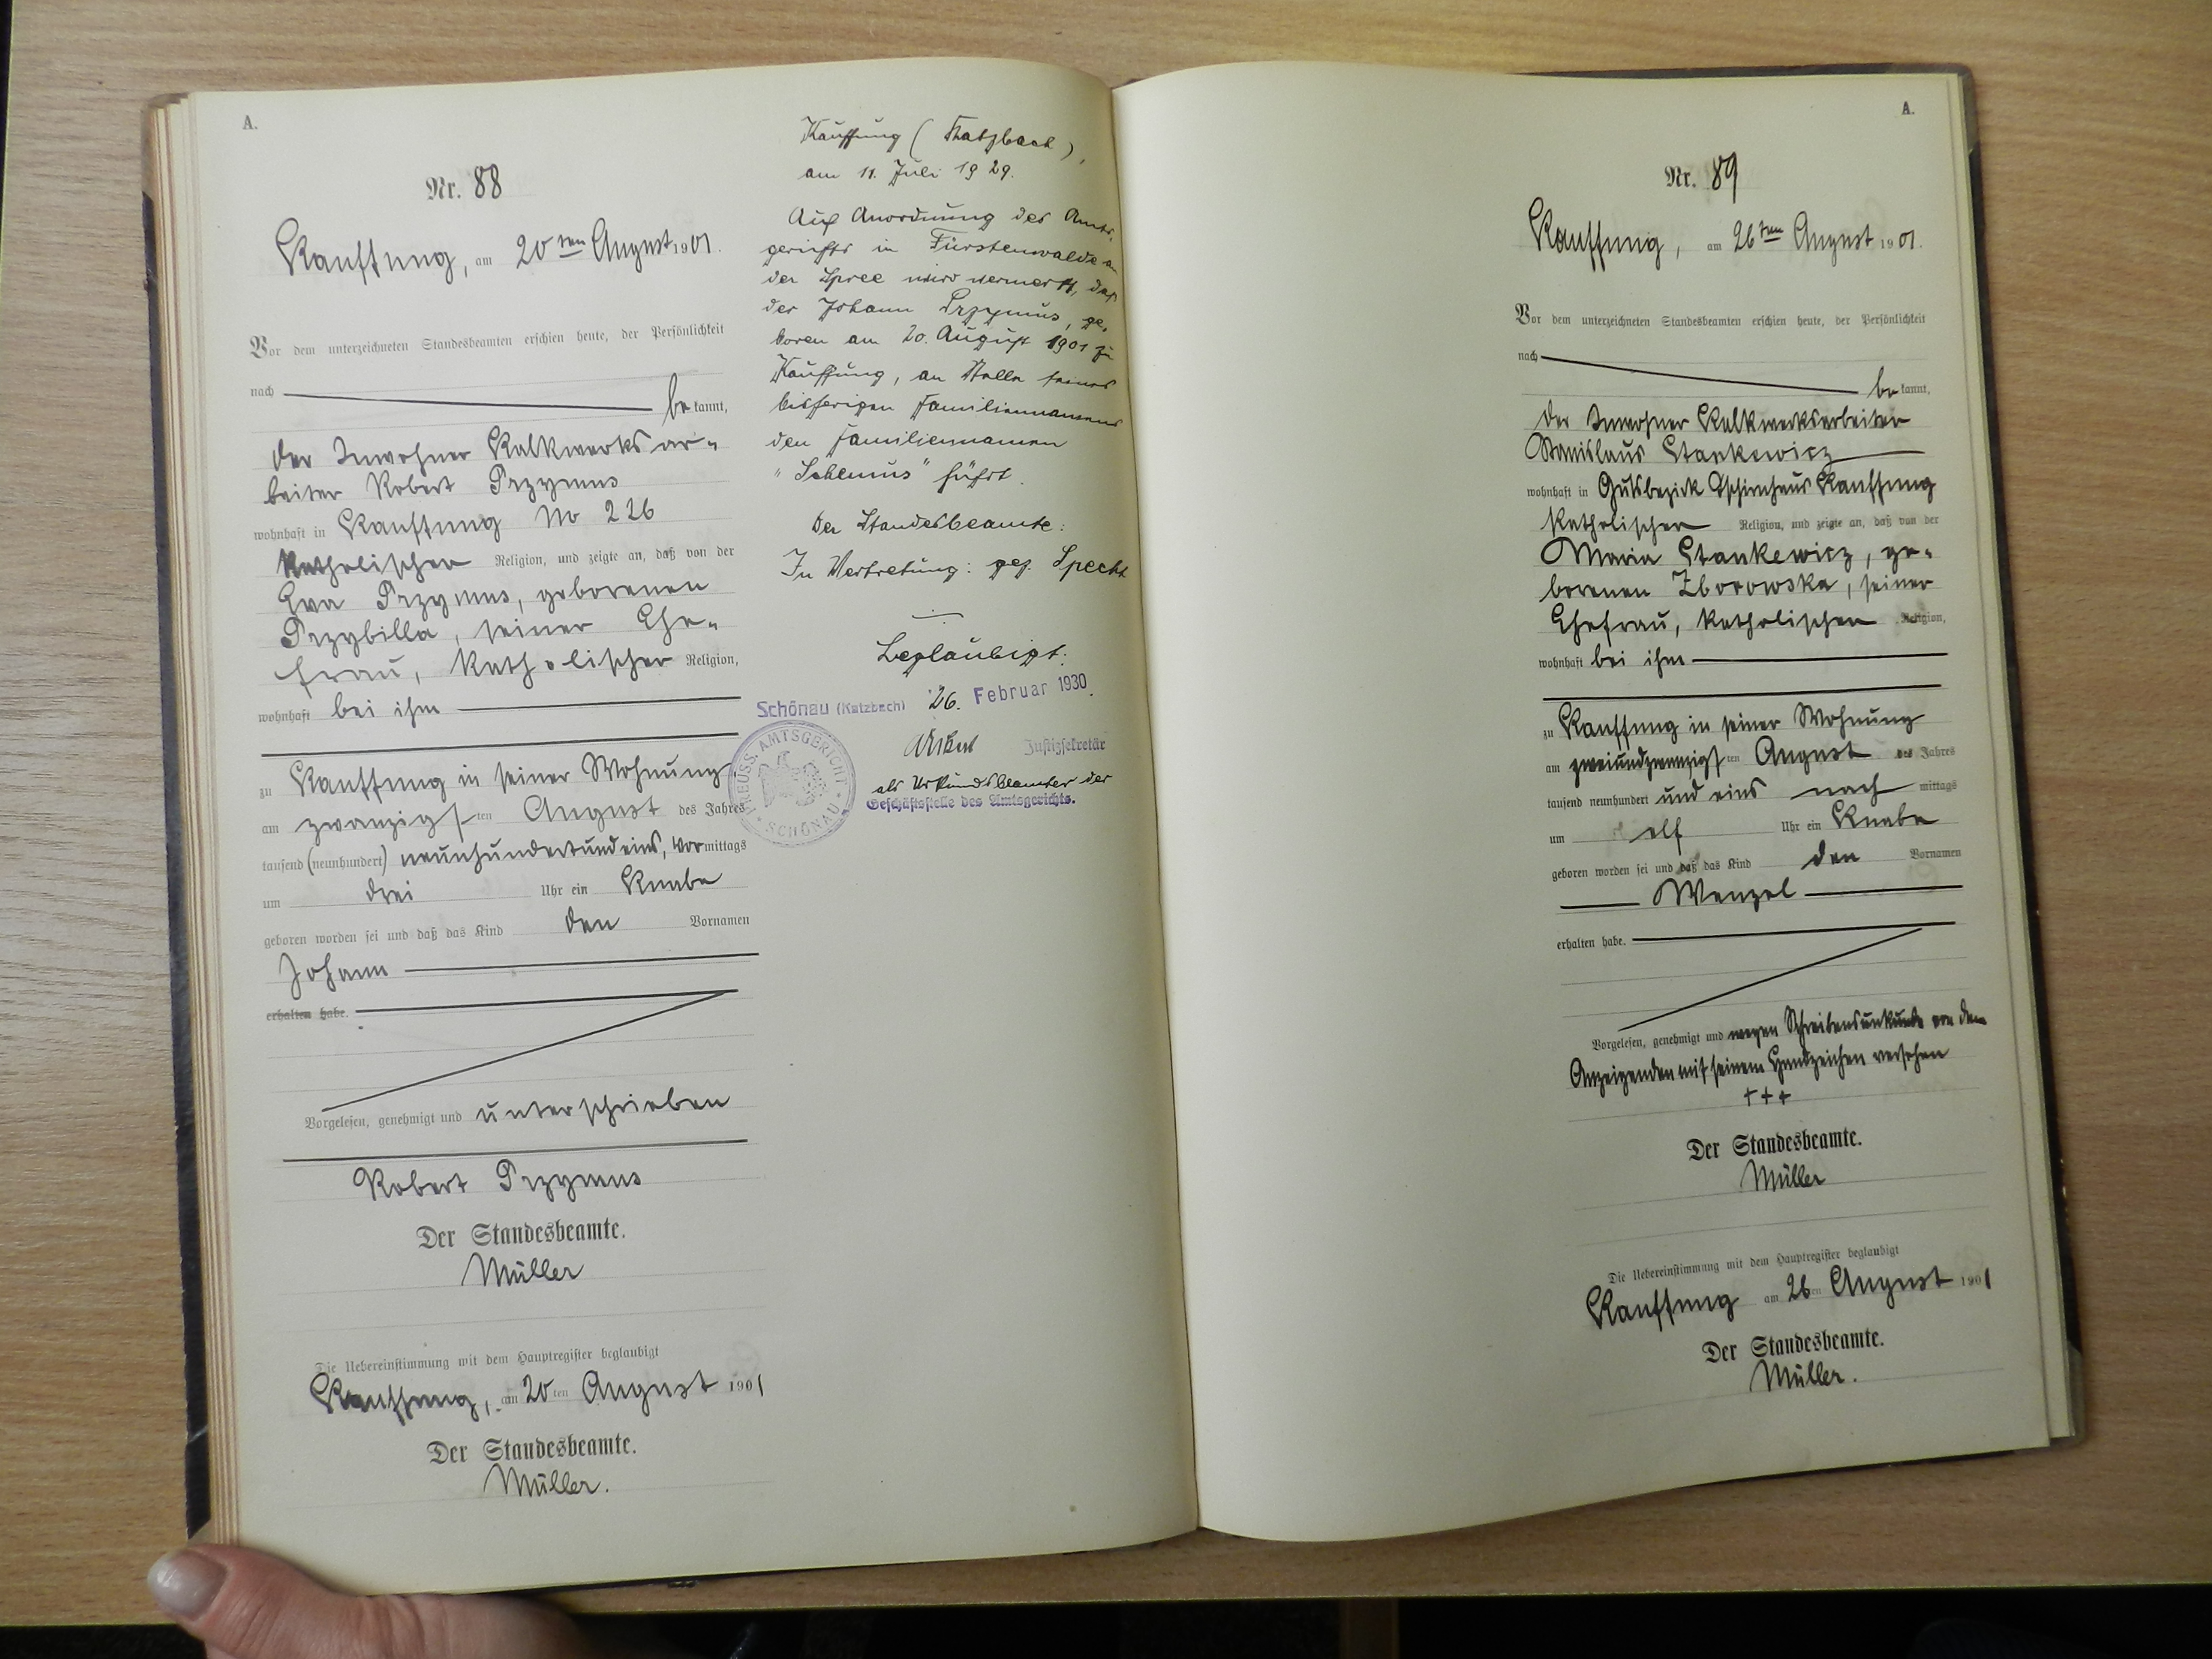 A.
Nr. 88
Kauffung, am 20ten August 1901.
Vor dem unterzeichneten Standesbeamten erschien heute, der Persönlichkeit
nach be kannt,
der Inwohner Kalkwerksar-
beiter Robert Przymus
wohnhaft in Kauffung No 226
katholischer Religion, und zeigte an, daß von der
Eva Przymus, geborenen
Przybilla, seiner Ehe-
frau, katholischer Religion,
wohnhaft bei ihm
zu Kauffung in seiner Wohnung
am zwanzigsten August des Jahres
tausend (neunhundert) neunhundertundeins, Vormittags
um drei Uhr ein Knabe
geboren worden sei und daß das Kind den Vornamen
Johann
erhalten habe.
Vorgelesen, genehmigt und unterschrieben
Robert Przymus
Der Standesbeamte.
Müller
Die Uebereinstimmung mit dem Hauptregister beglaubigt
Kauffung, am 20ten August 1901
Der Standesbeamte.
Müller.
Kauffung (Katzbach),
am 11. Juli 1929.
Auf Anordnung des Amts-
gerichts in Fürstenwalde an
der Spree wird vermerkt, daß
der Johann Przymus, ge-
boren am 20. August 1901 zu
Kauffung, an Stelle seines
bisherigen Familiennamens
den Familiennamen
"Schemus" führt.
Der Standesbeamte:
In Vertretung: gez. Specht
Beglaubigt.
Schönau (Katzbach) 26. Februar 1930.
Justizsekretär
als Urkundsbeamter der
Geschäftsstelle des Amtsgerichts.
PREUSS. AMTSGERICHT
SCHÖNAU
A.
Nr. 89
Kauffung, am 26ten August 1901.
Vor dem unterzeichneten Standesbeamten erschien heute, der Persönlichkeit
nach be kannt,
der Inwohner Kalkwerksarbeiter
Stanislaus Stankewicz
wohnhaft in Gutsbezirk Tschirnhaus Kauffung
katholischer Religion, und zeigte an, daß von der
Maria Stankewicz, ge-
borenen Zborowska, seiner
Ehefrau, katholischer Religion,
wohnhaft bei ihm
zu Kauffung in seiner Wohnung
am zweiundzwanzigsten August des Jahres
tausend neunhundert und eins nach mittags
um elf Uhr ein Knabe
geboren worden sei und daß das Kind den Vornamen
Wenzel
erhalten habe.
Vorgelesen, genehmigt und wegen Schreibensunkunde von dem
Anzeigenden mit seinem Handzeichen versehen
+++
Der Standesbeamte.
Müller
Die Uebereinstimmung mit dem Hauptregister beglaubigt
Kauffung am 26ten August 1901
Der Standesbeamte.
Müller.